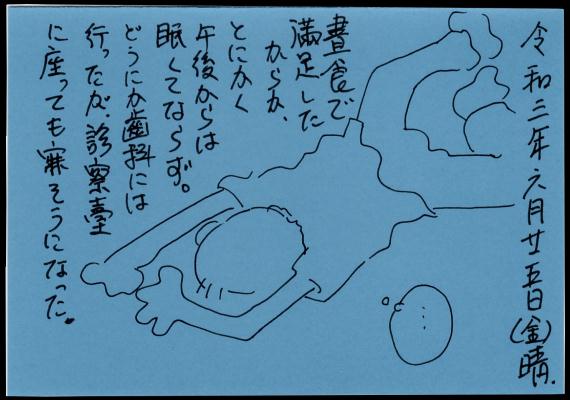 令和三年六月廿五日(金)晴.
晝食で
満足した
からか、
とにかく
午後からは
眠くてならず。
どうにか歯科には
行ったが、診察臺
に座っても寐そうになった。